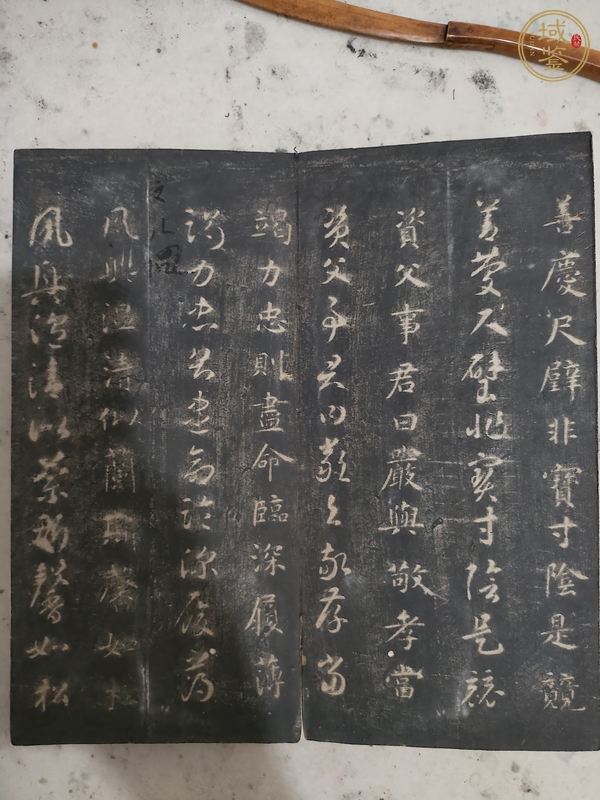 域鉴
善慶尺璧非寶寸陰是競
善慶尺璧非寶寸陰是競
資父事君曰嚴與敬孝當
資父事君曰嚴與敬孝當
竭力忠則盡命臨深履薄
竭力忠則盡命臨深履薄
夙興溫清似蘭斯馨如松
夙興溫清似蘭斯馨如松